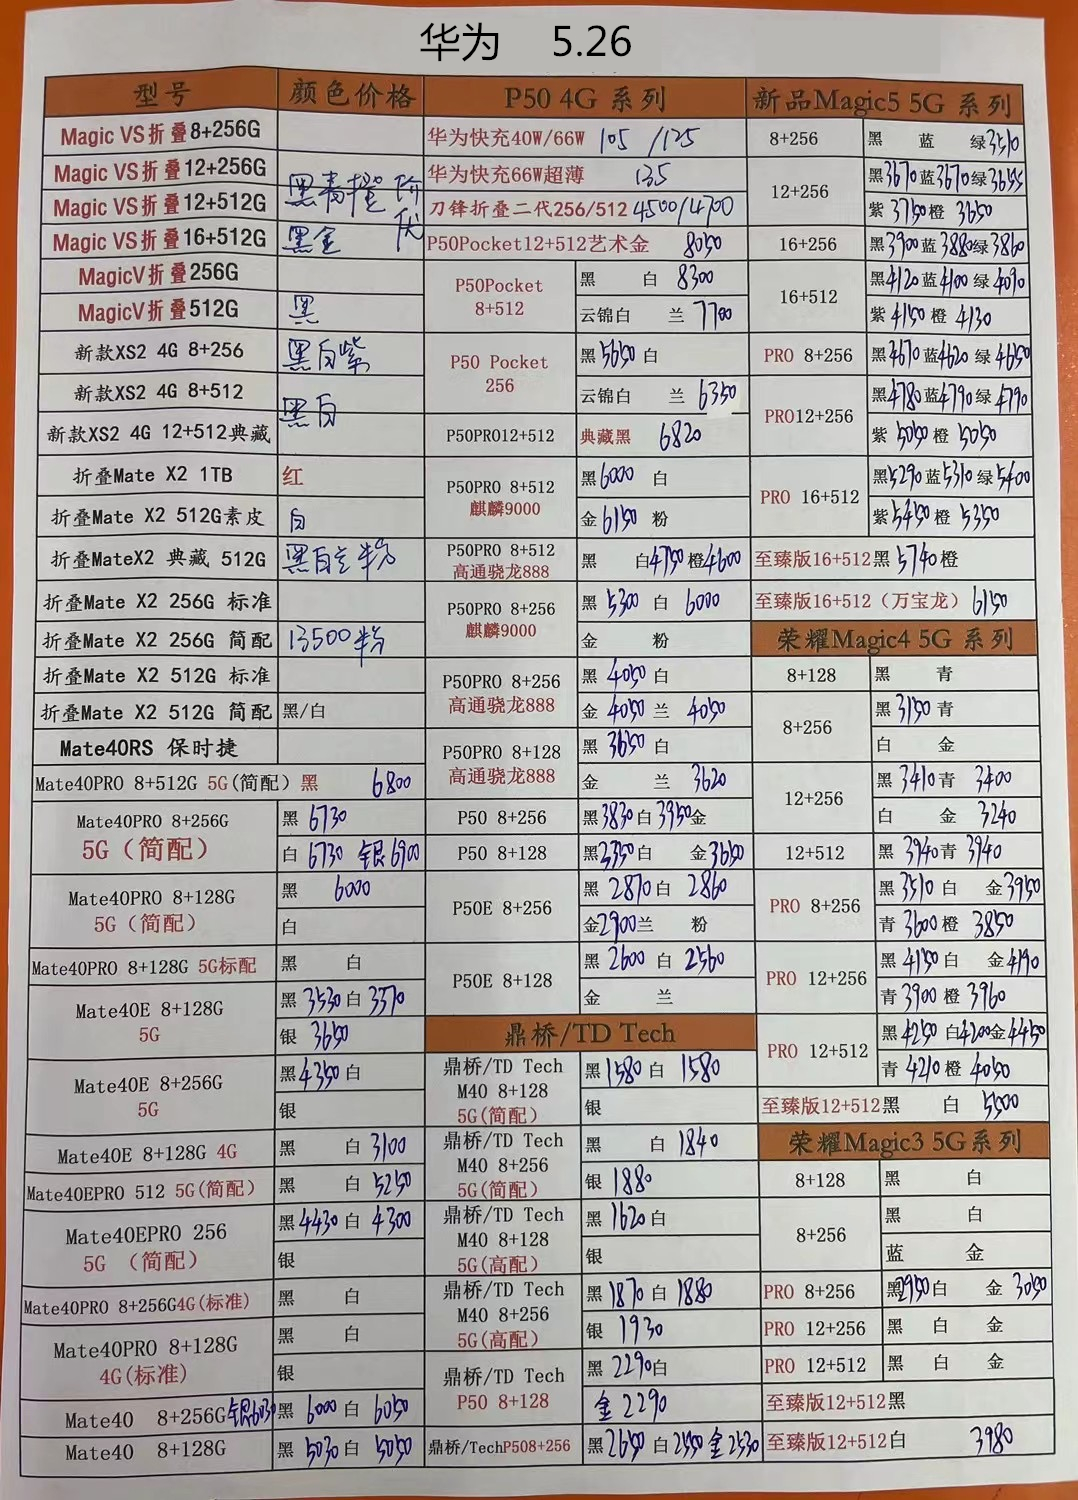 华为 5.26
型号 颜色价格
Magic VS折叠8+256G
Magic VS折叠12+256G
Magic VS折叠12+512G 黑青橙 价优
Magic VS折叠16+512G 黑金
MagicV折叠256G
MagicV折叠512G 黑
新款XS2 4G 8+256 黑白紫
新款XS2 4G 8+512 黑白
新款XS2 4G 12+512典藏
折叠Mate X2 1TB 红
折叠Mate X2 512G素皮 白
折叠MateX2 典藏 512G 黑白 粉
折叠Mate X2 256G 标准
折叠Mate X2 256G 简配 13500 粉
折叠Mate X2 512G 标准
折叠Mate X2 512G 简配 黑/白
Mate40RS 保时捷
Mate40PRO 8+512G 5G(简配) 黑 6800
Mate40PRO 8+256G
5G(简配)
黑 6730
白 6730 银 6900
Mate40PRO 8+128G
5G(简配)
黑 6000
白
Mate40PRO 8+128G 5G标配 黑 白
Mate40E 8+128G
5G
黑 3530 白 3370
银 3650
Mate40E 8+256G
5G
黑 4350 白
银
Mate40E 8+128G 4G 黑 白 3100
Mate40EPRO 512 5G(简配) 黑 白 5250
Mate40EPRO 256
5G (简配)
黑 4430 白 4300
银
Mate40PRO 8+256G4G(标准) 黑 白
Mate40PRO 8+128G
4G(标准)
黑 白
银
Mate40 8+256G 银6030 黑 6000 白 6050
Mate40 8+128G 黑 5030 白 5050
P50 4G 系列
华为快充40W/66W 105 /125
华为快充66W超薄 135
刀锋折叠二代256/512 4500/4700
P50Pocket12+512艺术金 8050
P50Pocket
8+512
黑 白 8300
云锦白 兰 7700
P50 Pocket
256
黑 5650 白
云锦白 兰 6350
P50PRO12+512 典藏黑 6820
P50PRO 8+512
麒麟9000
黑 6000 白
金 6150 粉
P50PRO 8+512
高通骁龙888
黑 白 4750 橙 4600
P50PRO 8+256
麒麟9000
黑 5300 白 6000
金 粉
P50PRO 8+256
高通骁龙888
黑 4050 白
金 4050 兰 4050
P50PRO 8+128
高通骁龙888
黑 3650 白
金 兰 3620
P50 8+256 黑 3830 白 3950 金
P50 8+128 黑 3350 白 金 3650
P50E 8+256
黑 2870 白 2860
金 2900 兰 粉
P50E 8+128
黑 2600 白 2560
金 兰
鼎桥/TD Tech
鼎桥/TD Tech
M40 8+128
5G(简配)
黑 1580 白 1580
银
鼎桥/TD Tech
M40 8+256
5G(简配)
黑 白 1840
银 1880
鼎桥/TD Tech
M40 8+128
5G(高配)
黑 1620 白
银
鼎桥/TD Tech
M40 8+256
5G(高配)
黑 1870 白 1880
银 1930
鼎桥/TD Tech
P50 8+128
黑 2290 白
金 2290
鼎桥/TechP508+256 黑 2650 白 2550 金 2530
新品Magic5 5G 系列
8+256 黑 蓝 绿 3510
12+256
黑 3670 蓝 3670 绿 3655
紫 3750 橙 3650
16+256 黑 3900 蓝 3880 绿 3860
16+512
黑 4120 蓝 4100 绿 4090
紫 4150 橙 4130
PRO 8+256 黑 4670 蓝 4620 绿 4650
PRO12+256
黑 4780 蓝 4790 绿 4790
紫 5050 橙 5050
PRO 16+512
黑 5290 蓝 5310 绿 5400
紫 5450 橙 5350
至臻版16+512 黑 5740 橙
至臻版16+512(万宝龙) 6150
荣耀Magic4 5G 系列
8+128 黑 青
8+256
黑 3150 青
白 金
12+256
黑 3410 青 3400
白 金 3240
12+512 黑 3940 青 3940
PRO 8+256
黑 3510 白 金 3950
青 3600 橙 3850
PRO 12+256
黑 4150 白 金 4190
青 3900 橙 3960
PRO 12+512
黑 4250 白 4200 金 4450
青 4210 橙 4050
至臻版12+512 黑 白 5500
荣耀Magic3 5G系列
8+128 黑 白
8+256
黑 白
蓝 金
PRO 8+256 黑 2950 白 金 3050
PRO 12+256 黑 白 金
PRO 12+512 黑 白 金
至臻版12+512黑
至臻版12+512白 3980